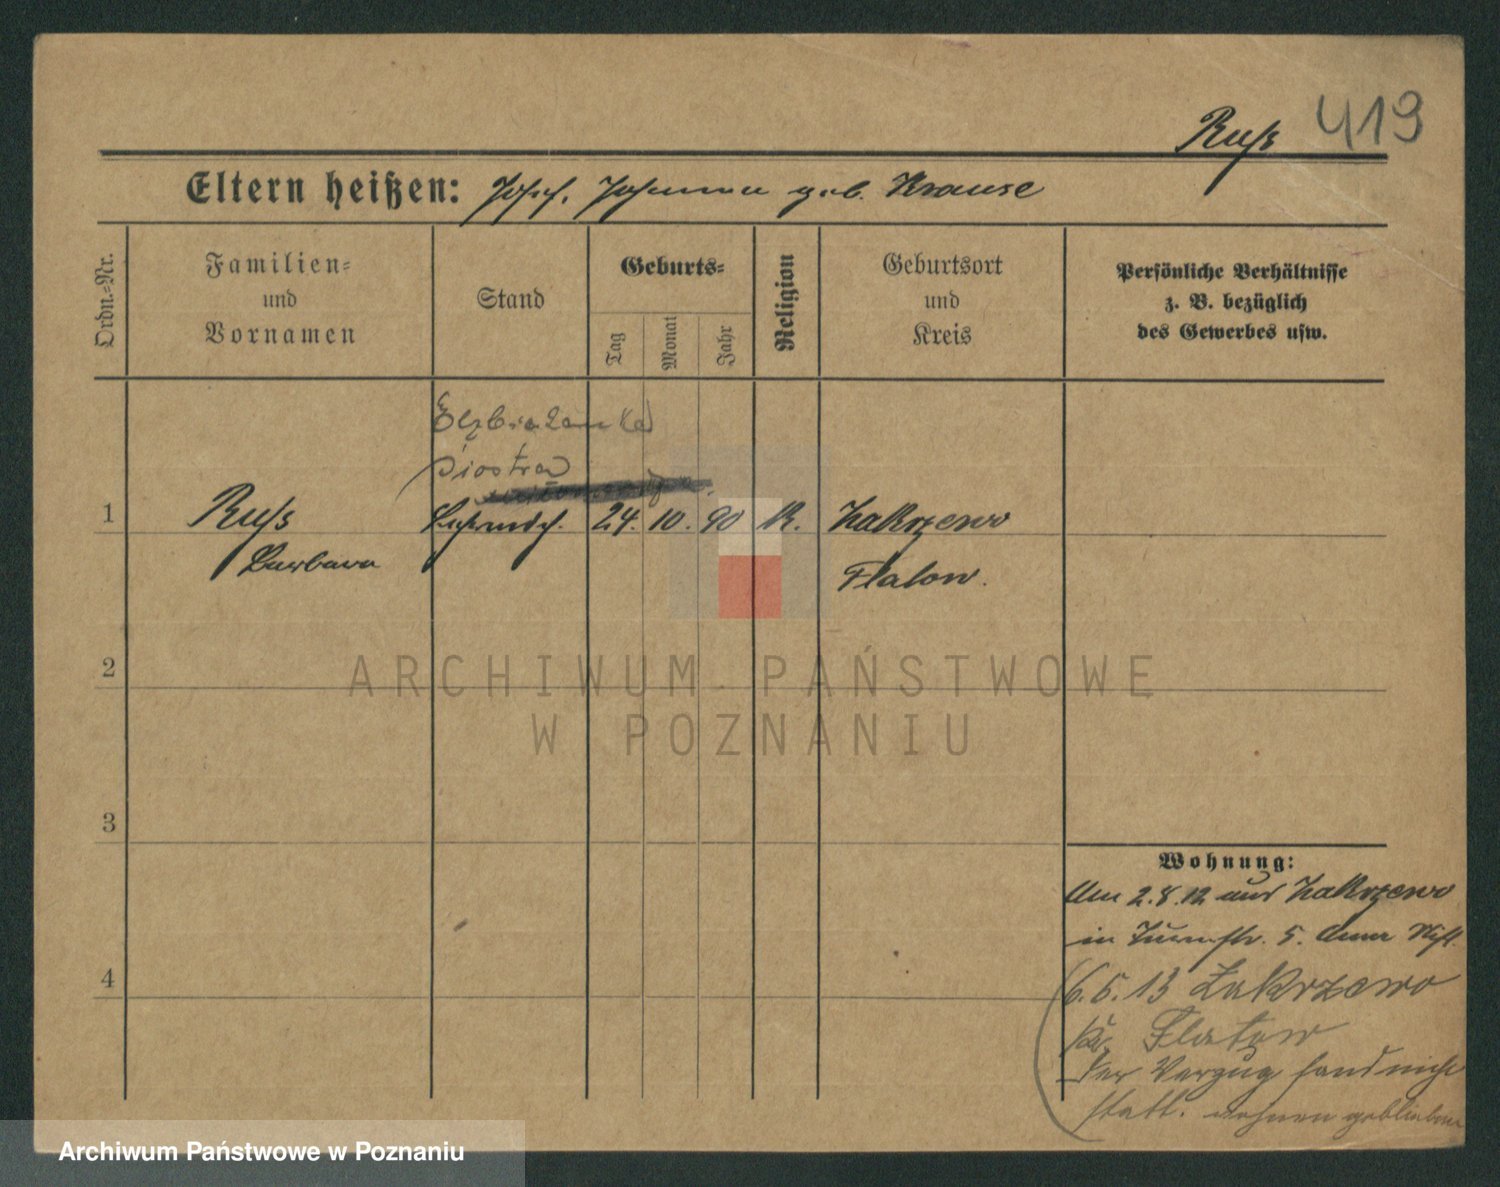 419
Ruſs
Eltern heißen: Josef, Johanna geb. Krause
Ordn.-Nr.
Familien-
und
Vornamen
Stand
Geburts-
Tag
Monat
Jahr
Religion
Geburtsort
und
Kreis
Persönliche Verhältnisse
z. B. bezüglich
des Gewerbes usw.
Elżbietanka
siostra
1 Ruſs 24. 10. 90 K. Zakrzewo
Barbara Flatow.
2
3
4
Wohnung:
Am 2.8.12 aus Zakrzewo
in 5.
6.5.13 Zakrzewo
Kr. Flatow
Der Verzug fand nicht
statt. wohnen geblieben
ARCHIWUM PAŃSTWOWE
W POZNANIU
Archiwum Państwowe w Poznaniu